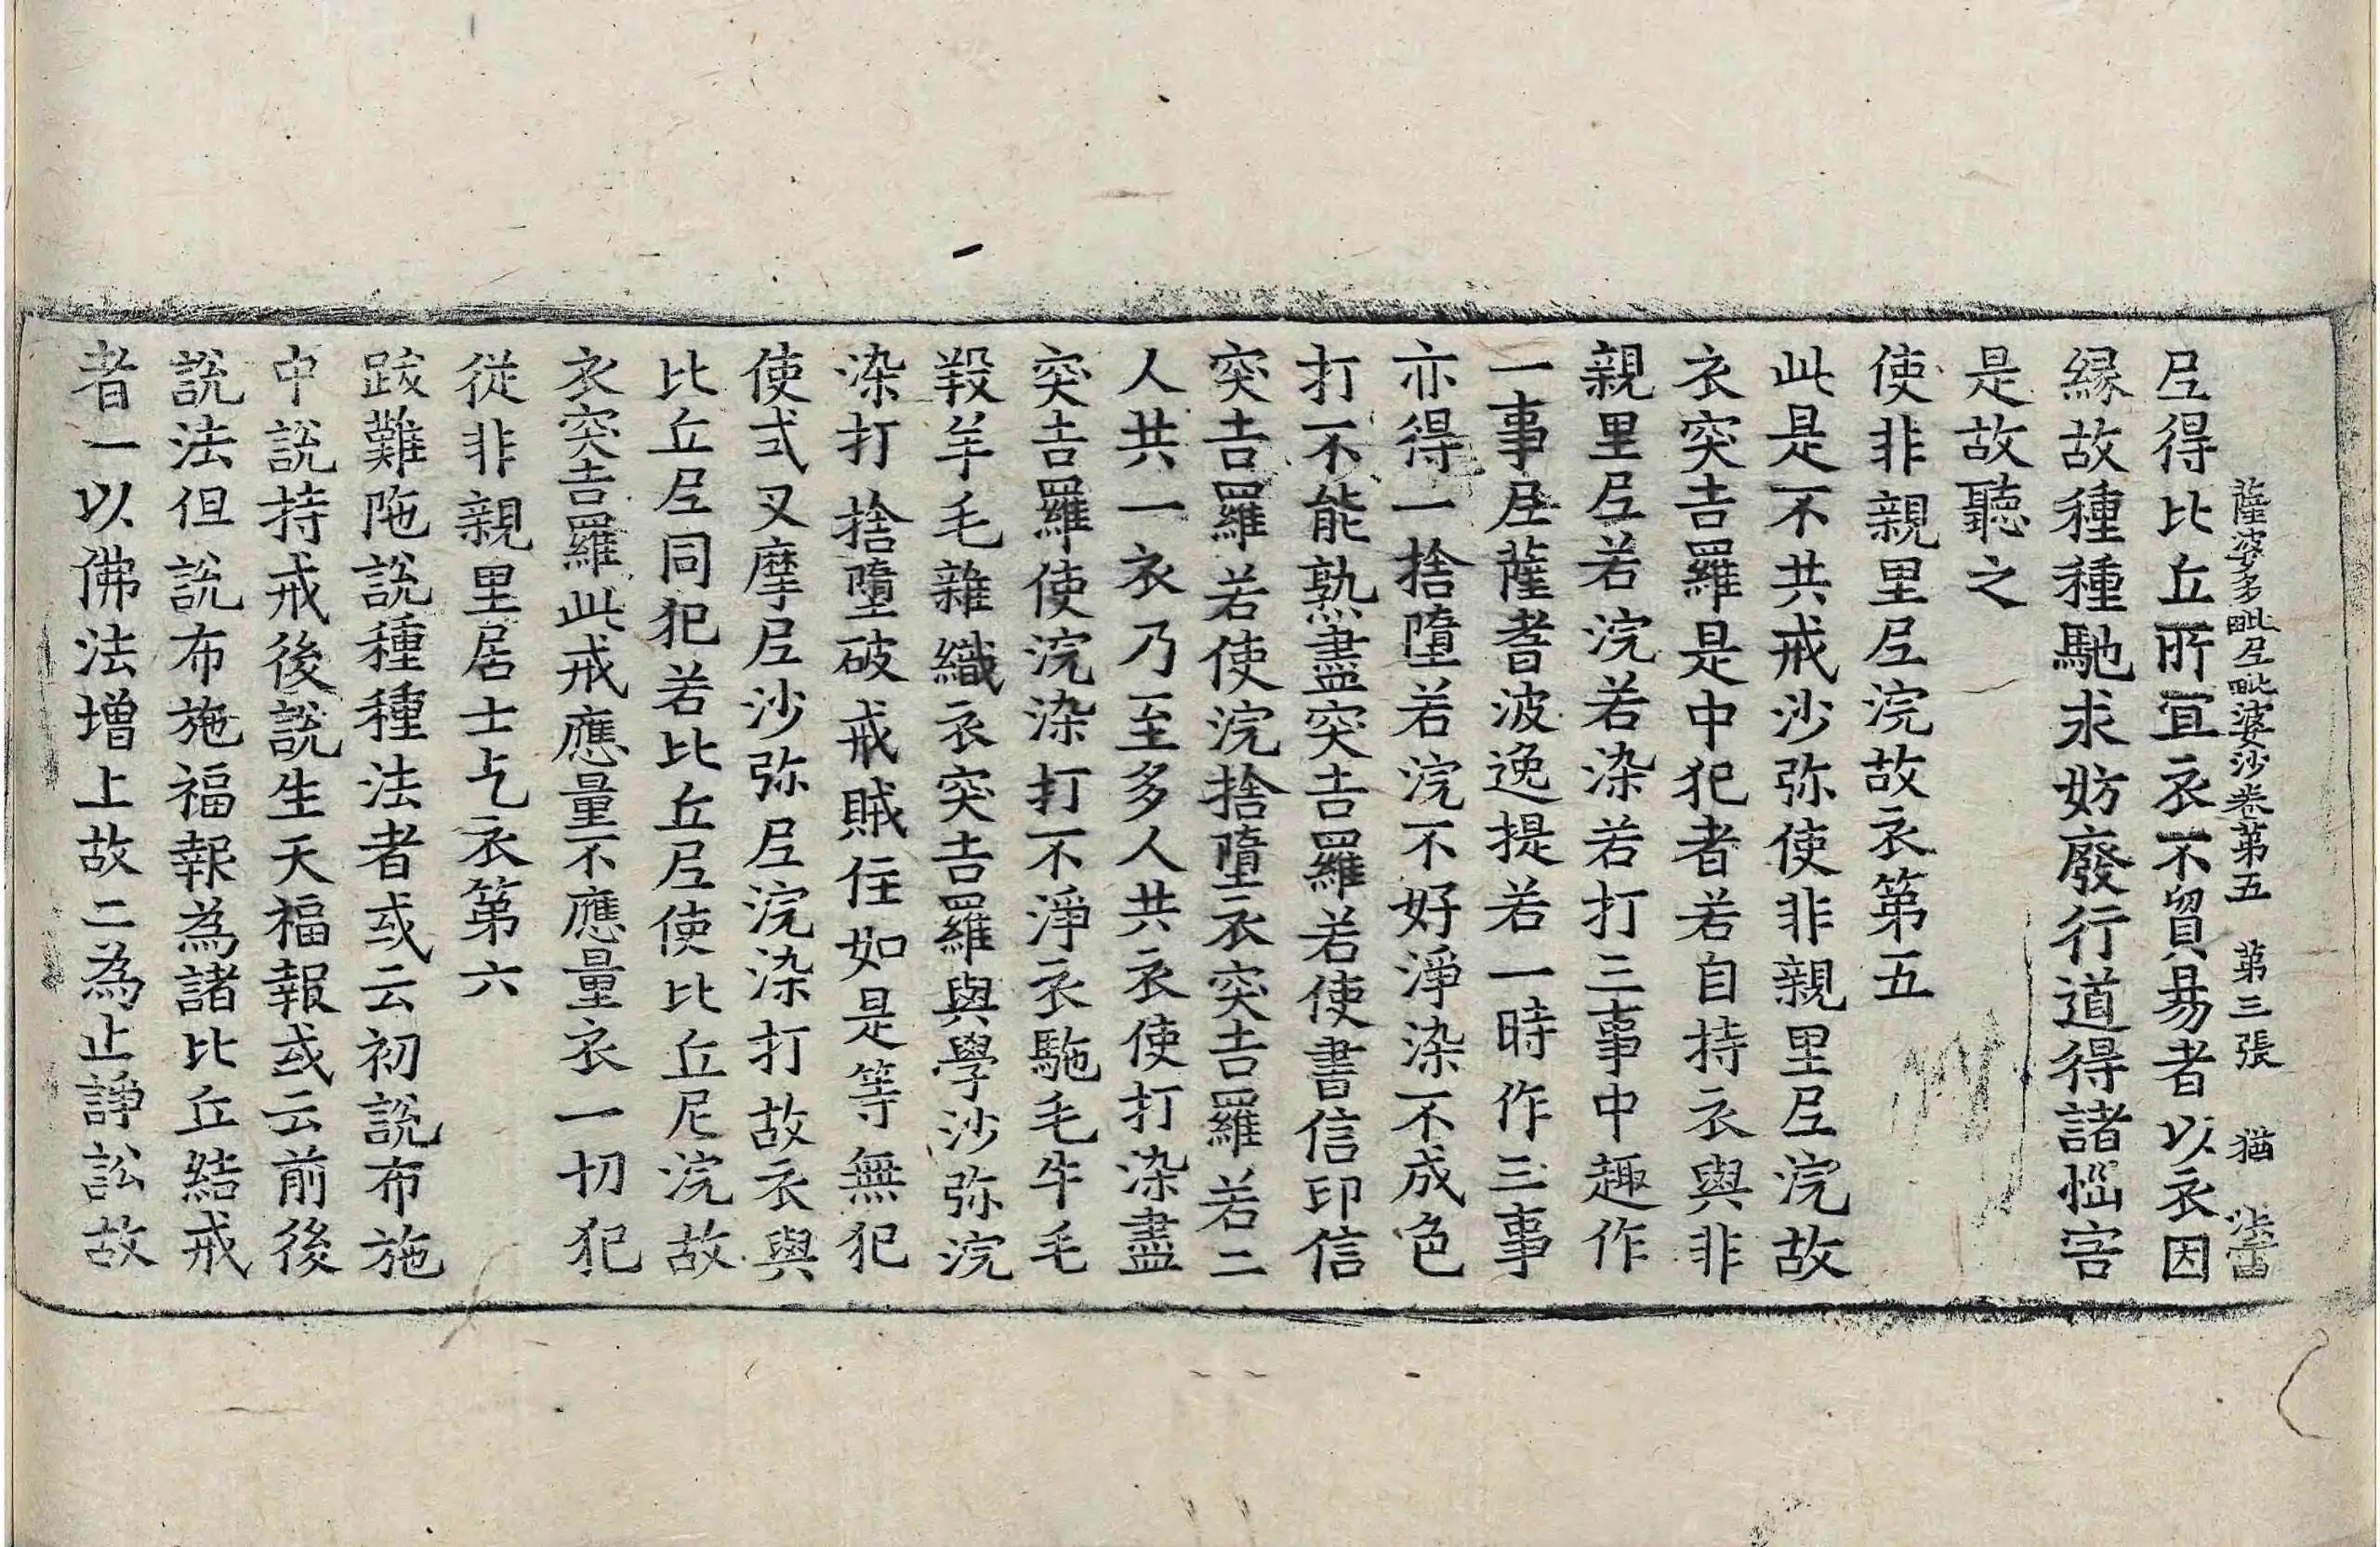 薩婆多毗𡰱毗婆沙卷苐五　苐三張　猶　法雷
𡰱得比丘所冝衣不貿易者以衣因
縁故種種馳求妨廢行道得諸惱害
是故聽之
使非親里𡰱浣故衣第五
此是不共戒沙弥使非親里𡰱浣故
衣突吉羅是中犯者若自持衣與非
親里𡰱若浣若染若打三事中趣作
一事𡰱薩耆波逸提若一時作三事
亦得一捨墮若浣不好淨染不成色
打不能熟盡突吉羅若使書信印信
突吉羅若使浣捨墮衣突吉羅若二
人共一衣乃至多人共衣使打染盡
突吉羅使浣染打不淨衣駞毛牛毛
羖羊毛雜織衣突吉羅與學沙弥浣
染打捨墮破戒賊住如是等無犯
使式叉摩𡰱沙弥𡰱浣染打故衣與
比丘𡰱同犯若比丘𡰱使比丘尼浣故
衣突吉羅此戒應量不應量衣一切犯
從非親里居士乞衣第六
跋難陁說種種法者或云初說布施
中說持戒後說生天福報或云前後
說法但說布施福報為諸比丘結戒
者一以佛法增上故二為止諍訟故